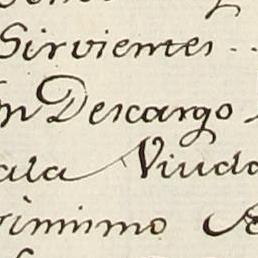 Sirvientes . .
Descargo
ala Viuda
rimismo